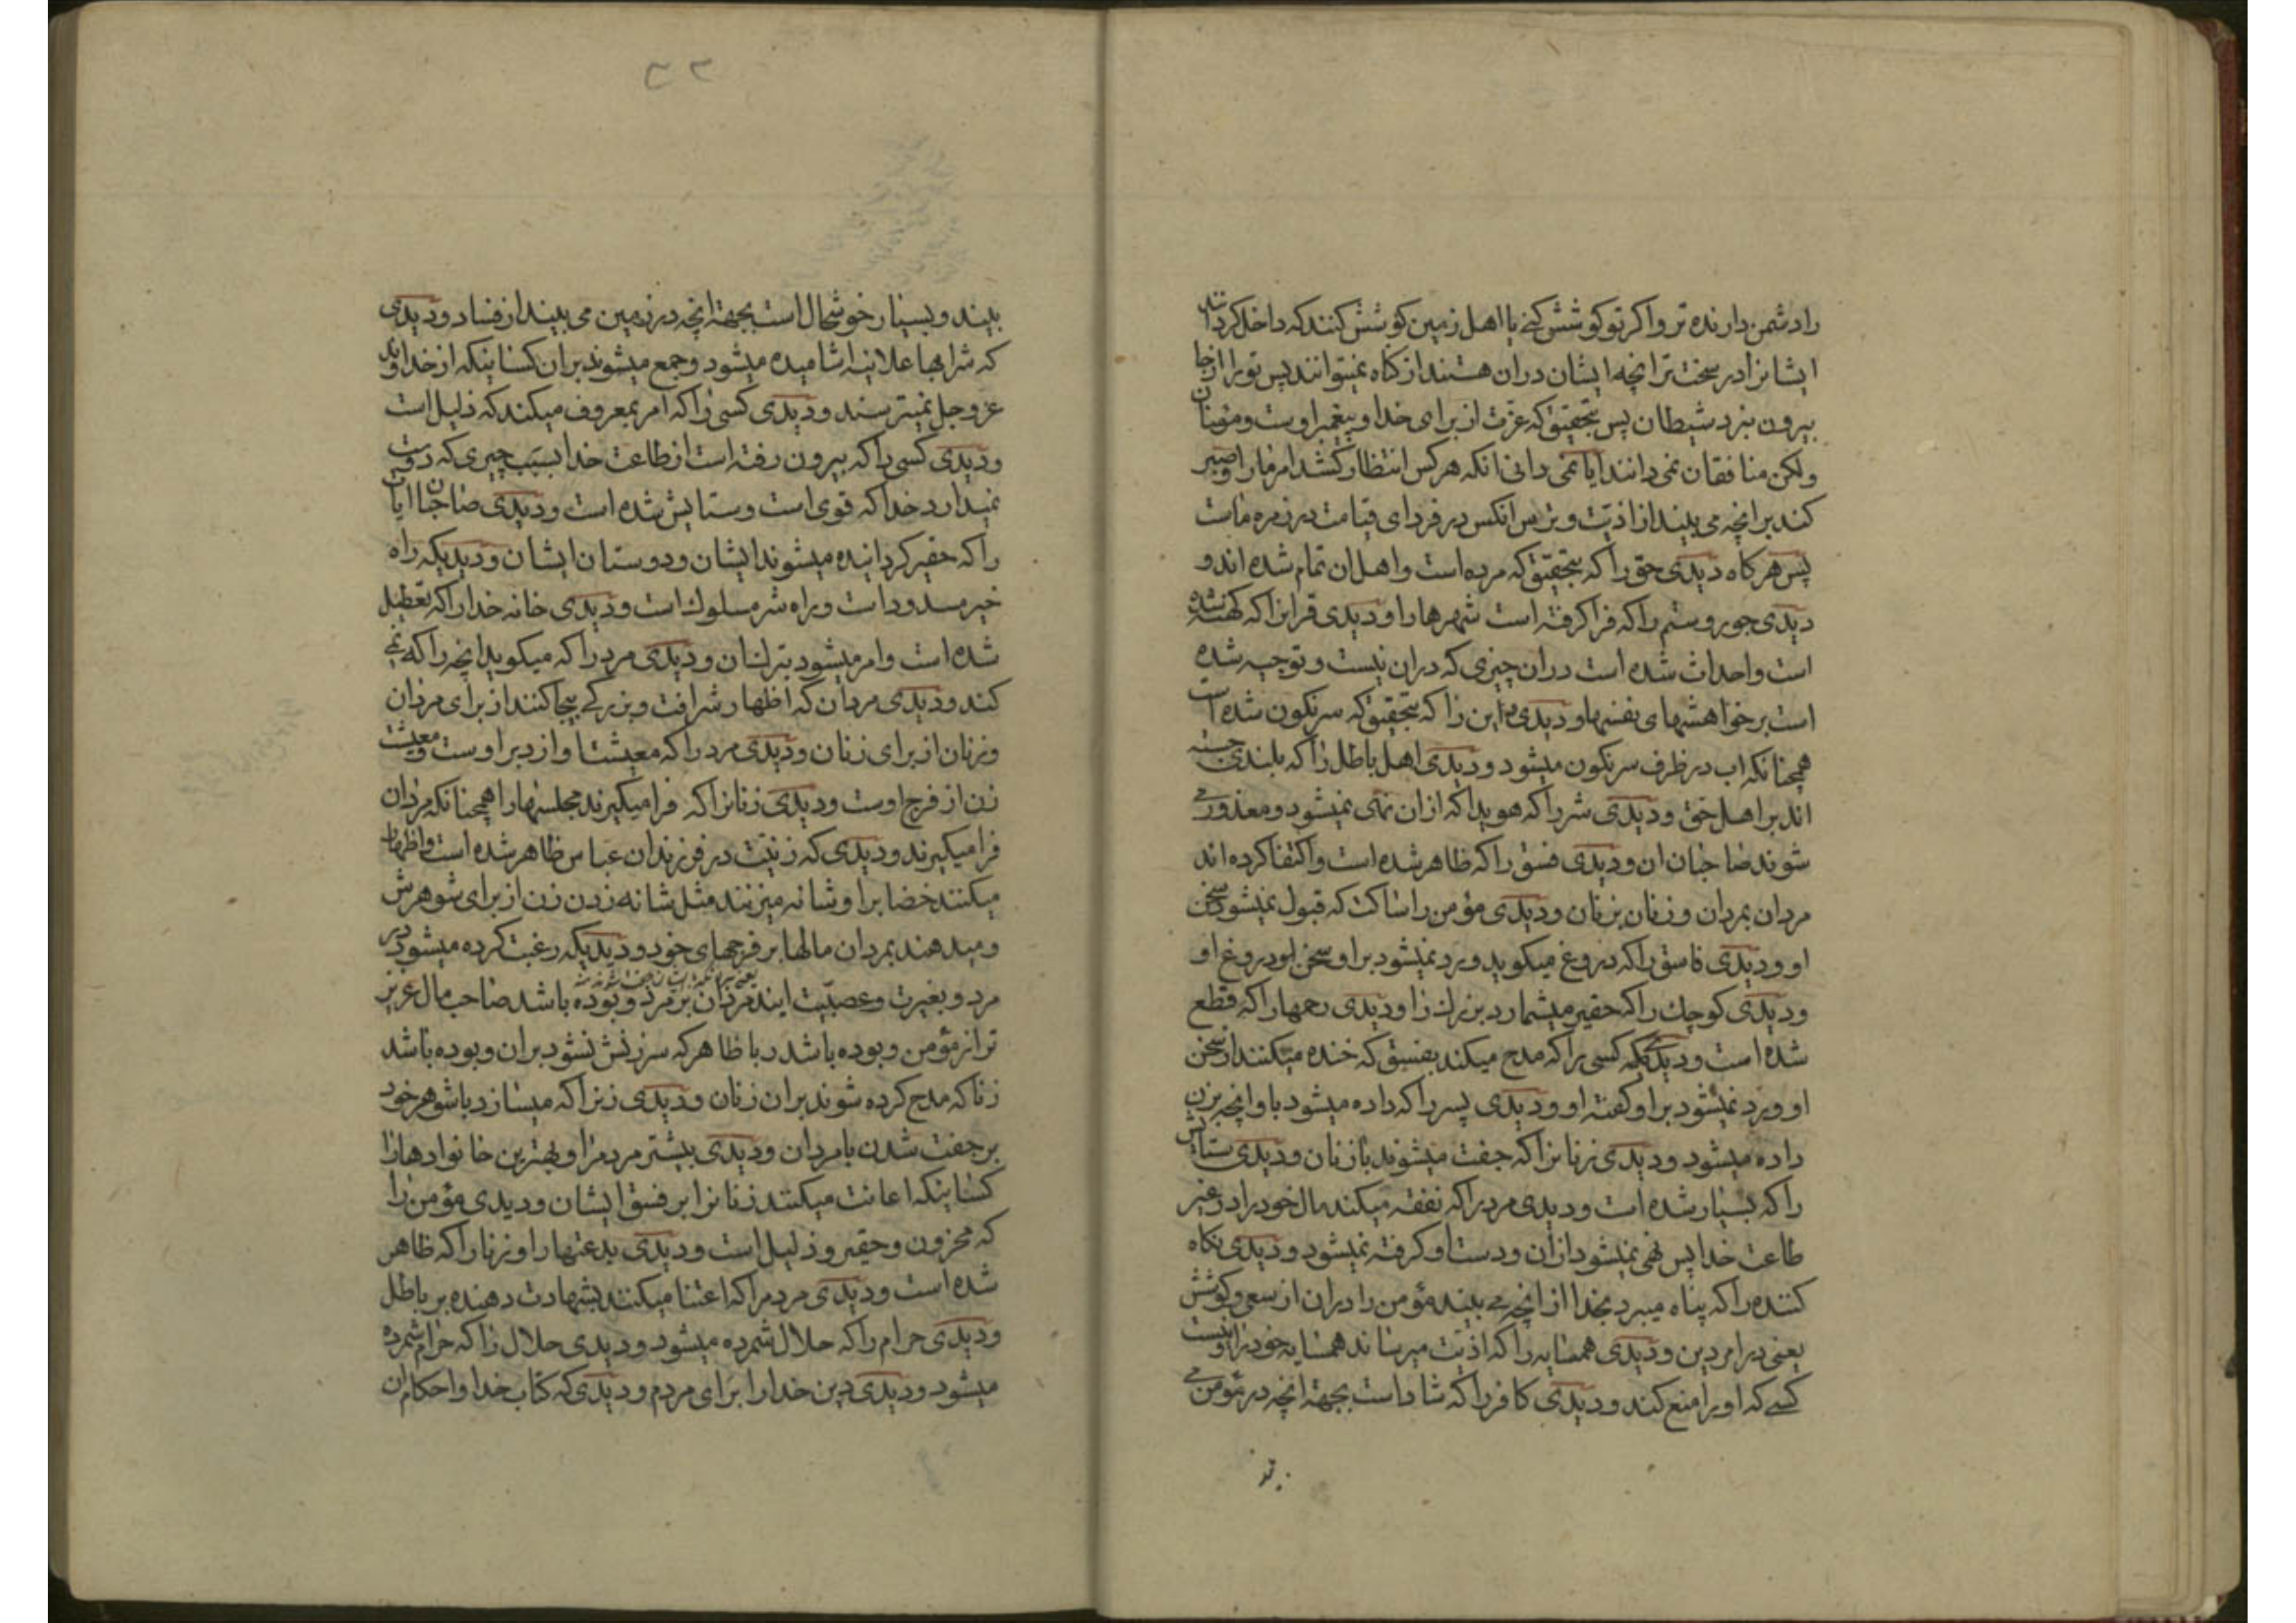 را دشمن دارنده تر و اکر تو کوشش کنی یا اهل زمین کوشش کنند که داخل کردانند
ایشانرا در سخت تر انچه ایشان دران هستند از کناه نمیتوانند پس تو را از انجا
بیرون نبرد شیطان پس بتحقیق که عزت از برای خدا و پیغمبر اوست و مؤمنان
ولکن منافقان نمی دانند ایا نمی دانی انکه هر کس انتظار کشد امر ما را و صبر
کند بر انچه می بیند از اذیت و ترس انکس در فردای قیامت در زمره ماست
پس هر کاه دیدی حق را که بتحقیق که مرده است و اهل ان تمام شده اند و
دیدی جور و ستم را که فرا کرفته است شهرها را و دیدی قرانرا که کهنه شده
است و احداث شده است دران چیزی که دران نیست و توجیه شده
است بر خواهشهای نفسها و دیدی دین را که بتحقیق که سرنکون شده است
همچنانکه اب در ظرف سرنکون میشود و دیدی اهل باطل را که بلندی جسته
اند بر اهل حق و دیدی شر را که هویدا که ازان نهی نمیشود و معذور می
شوند صاحبان ان و دیدی فسق را که ظاهر شده است و اکتفا کرده اند
مردان بمردان و زنان بزنان و دیدی مؤمن را ساکت که قبول نمیشود سخن
او و دیدی فاسق را که دروغ میکوید و رد نمیشود بر او سخن او و دروغ او
و دیدی کوچک را که حقیر میشمارد بزرک را و دیدی رحمها را که قطع
شده است و دیدی که کسی را که مدح میکند بفسق که خنده میکنند از سخن
او و رد نمیشود بر او کفته او و دیدی پسر را که داده میشود باو انچه بزن
داده میشود و دیدی زنانرا که جفت میشوند با زنان و دیدی ستایش
را که بسیار شده است و دیدی مرد را که نفقه میکند مال خود را در غیر
طاعت خدا پس نهی نمیشود ازان و دست او کرفته نمیشود و دیدی نکاه
کننده را که پناه میبرد بخدا از انچه می بیند مؤمن را دران از سعی و کوشش
یعنی در امر دین و دیدی همسایه را که اذیت میرساند همسایه خود را و نیست
کسی که او را منع کند و دیدی کافر را که شاد است بجهة انچه در مؤمن می
۲۲
بیند و بسیار خوشحال است بجهة انچه در زمین می بیند از فساد و دیدی
که شرابها علانیه اشامیده میشود و جمع میشوند بران کسانیکه از خداوند
عز و جل نمیترسند و دیدی کسی را که امر بمعروف میکند که ذلیل است
و دیدی کسی را که بیرون رفته است از طاعت خدا بسبب چیزی که دوست
نمیدارد خدا که قوی است و ستایش شده است و دیدی صاحبان ایات
را که حقیر کردانیده میشوند ایشان و دوستان ایشان و دیدیکه راه
خیر مسدود است و راه شر مسلوک است و دیدی خانه خدا را که تعطیل
شده است و امر میشود بترک ان و دیدی مرد را که میکوید انچه را که نمی
کند و دیدی مردان که اظهار شرافت و بزرکی بیجا کنند از برای مردان
و زنان از برای زنان و دیدی مرد را که معیشت او از دبر اوست و معیشت
زن از فرج اوست و دیدی زنانرا که فرا میکیرند مجلسها را همچنانکه مردان
فرا میکیرند و دیدی که زنیت در فرزندان عباس ظاهر شده است و اظهار
میکنند خضاب را و شانه میزنند مثل شانه زدن زن از برای شوهرش
و میدهند بمردان مالها بر فرجهای خود و دیدیکه رغبت کرده میشود در
مرد و بغیرت و عصبیت ایند مردان بر مرد و بوده باشد صاحب مال عزیز
تر از مؤمن و بوده باشد ربا ظاهر که سرزنش نشود بران و بوده باشد
زنا که مدح کرده شوند بران زنان و دیدی زنرا که میسازد با شوهر خود
بر جفت شدن با مردان و دیدی بیشتر مردمرا و بهترین خانوادها را
کسانیکه اعانت میکنند زنانرا بر فسق ایشان و دیدی مؤمن را
که محزون و حقیر و ذلیل است و دیدی بدعتها را و زنا را که ظاهر
شده است و دیدی مردمرا که اعتنا میکنند بشهادت دهنده بر باطل
و دیدی حرام را که حلال شمرده میشود و دیدی حلال را که حرام شمرده
میشود و دیدی دین خدا را برای مردم و دیدی که کتاب خدا و احکام ان